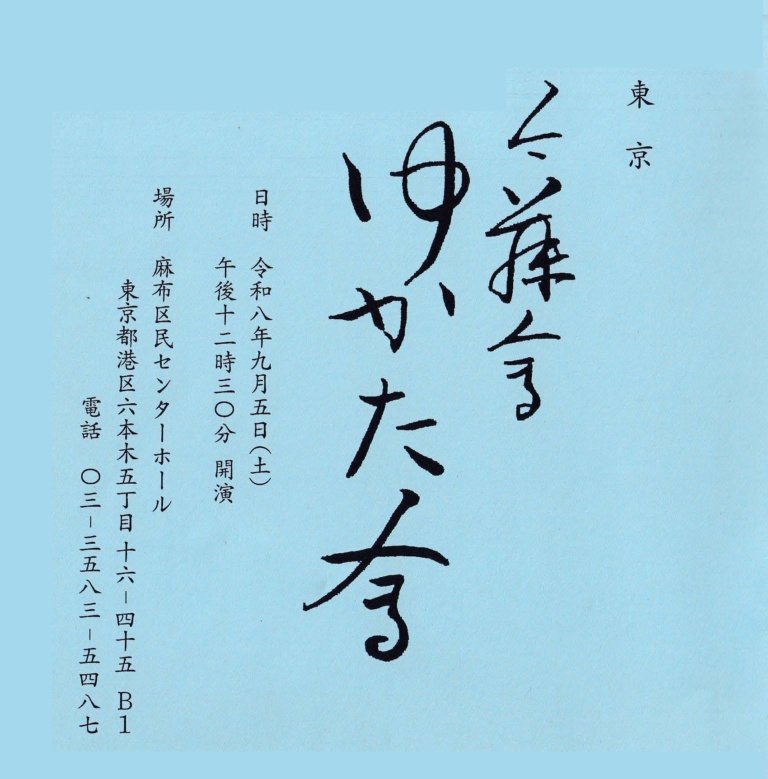 東京
今藤會
ゆかた會
日時 令和八年九月五日(土)
午後十二時三〇分 開演
場所 麻布区民センターホール
東京都港区六本木五丁目十六−四十五 B1
電話 〇三−三五八三−五四八七